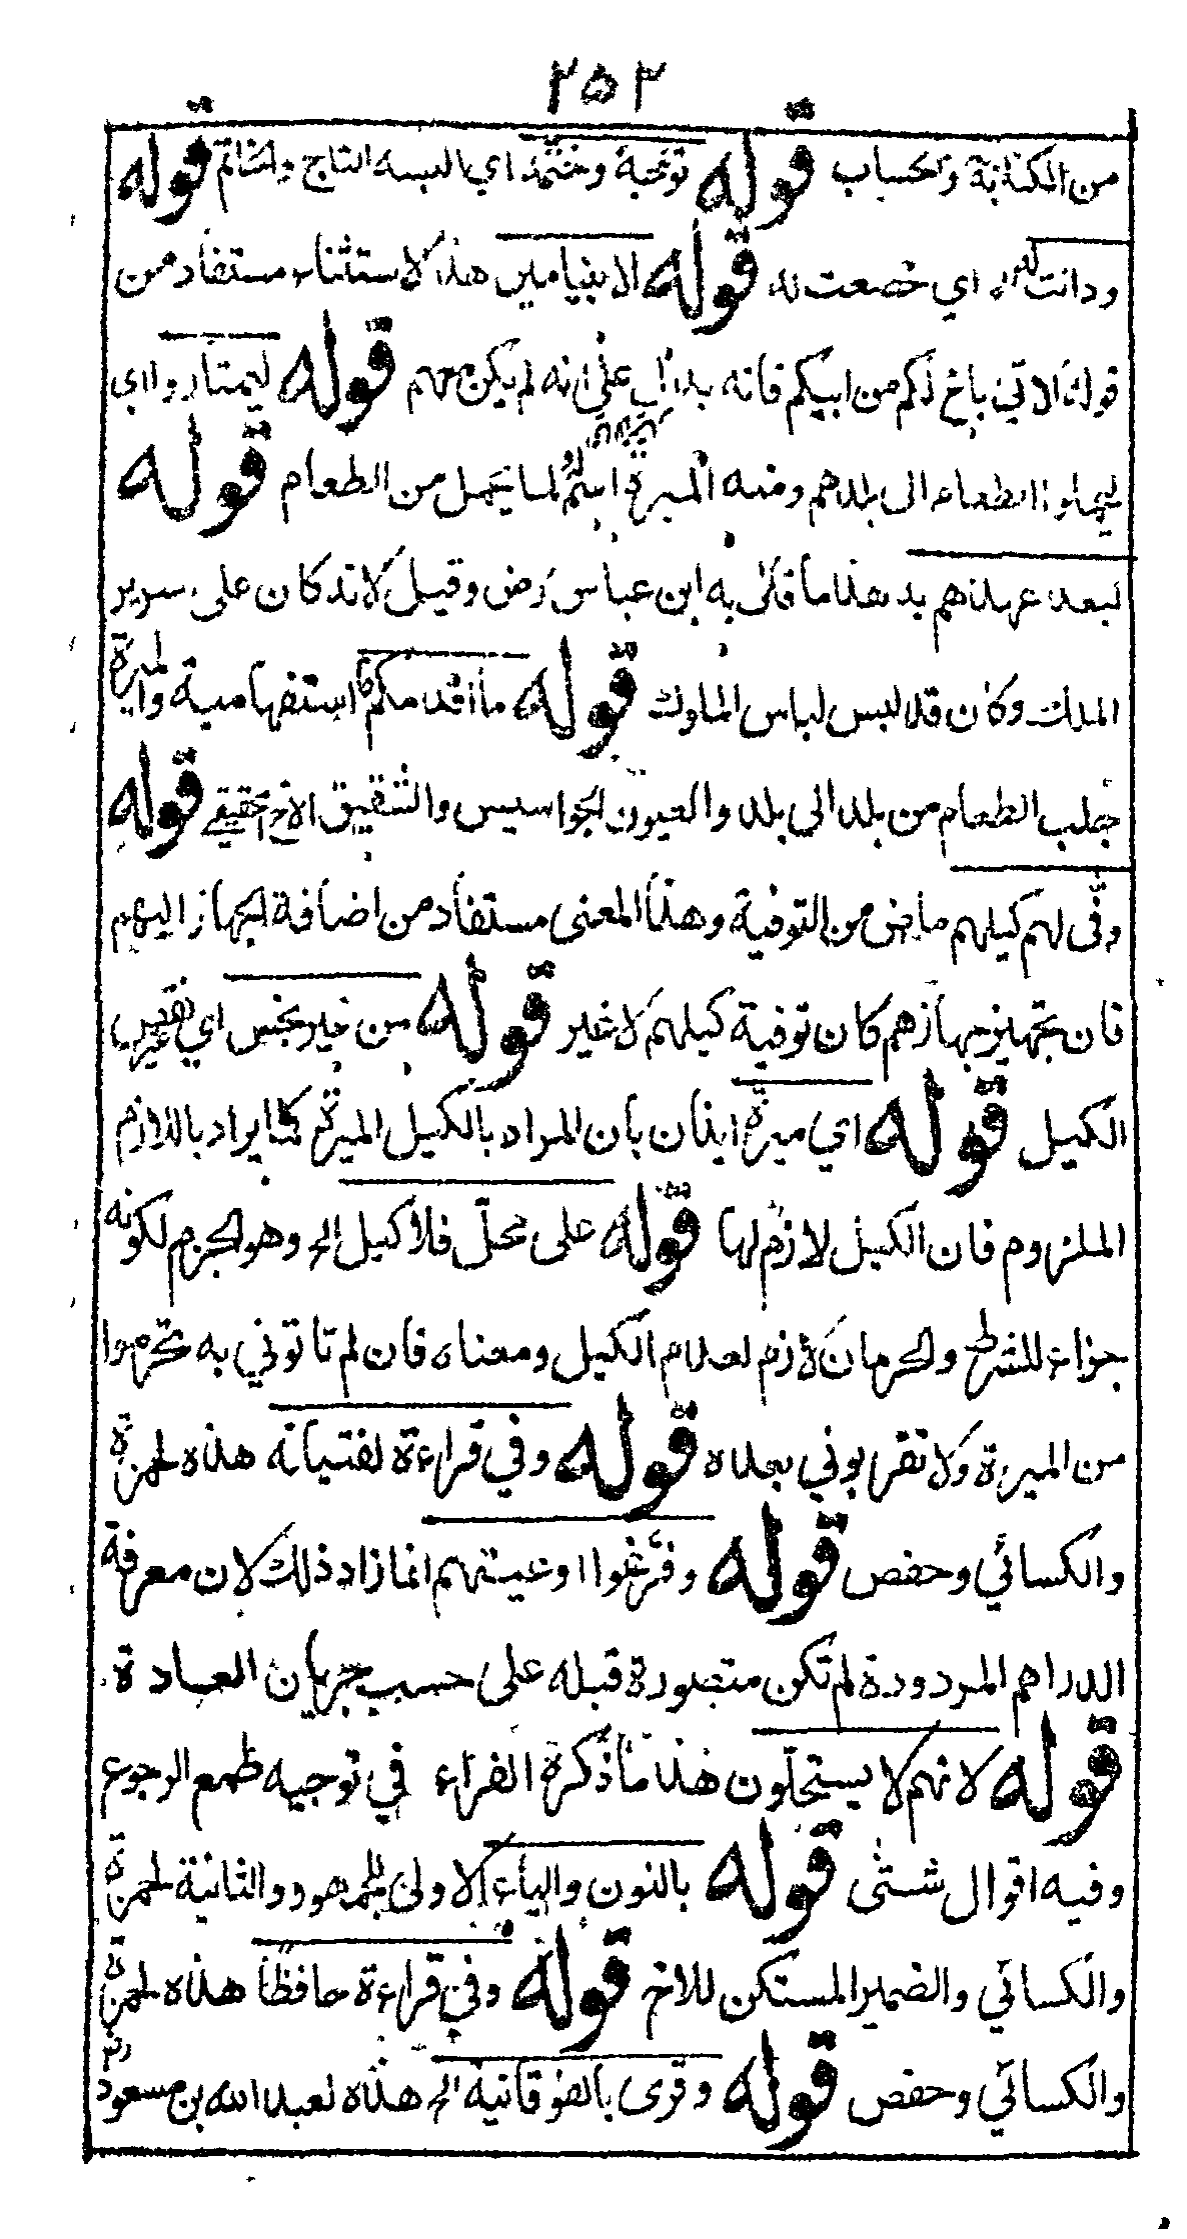 ٢٥٢
من الكتابة والحساب قوله توّجه وختّمه اي البسه التاج والخاتم قوله
ودانت له اي خضعت له قوله لا بنيامين هذا الاستثناء مستفاد من
قوله الاتي باخ لكم من ابيكم فانه يدل على انه لم يكن معهم قوله ليمتاروا اي
ليحملوا الطعام الى بلدهم ومنه الميرة اسم لما يحمل من الطعام قوله
لبعد عهدهم به هذا ما قال به ابن عباس رض وقيل لانه كان على سرير
الملك وكان قد لبس لباس الملوك قوله ما اقدمكم استفهامية والميرة
جلب الطعام من بلد الى بلد والعيون الجواسيس والشقيق الاخ الحقيقي قوله
وفّى لهم كيلهم ماض من التوفية وهذا المعنى مستفاد من اضافة الجهاز اليهم
فان تجهيز جهازهم كان توفية كيلهم لا غير قوله من غير بخس اي نقص
الكيل قوله اي ميرة ايذان بان المراد بالكيل الميرة كما يراد باللازم
الملزوم فان الكيل لازم لها قوله على محلّ فلا كيل الخ وهو الجزم لكونه
جزاء للشرط والحرمان لازم لعدم الكيل ومعناه فان لم تاتوني به تحرموا
من الميرة ولا تقربوني بعده قوله وفي قراءة لفتيانه هذه لحمزة
والكسائي وحفص قوله وفرّغوا اوعيتهم انما زاد ذلك لان معرفة
الدراهم المردودة لم تكن متصورة قبله على حسب جريان العادة
قوله لانهم لا يستحلّون هذا ما ذكره الفراء في توجيه طمع الرجوع
وفيه اقوال شتى قوله بالنون والياء الاولى للجمهور والثانية لحمزة
والكسائي والضمير المستكن للاخ قوله وفي قراءة حافظًا هذه لحمزة
والكسائي وحفص قوله وقرى بالفوقانية الخ هذه لعبد الله بن مسعود رض